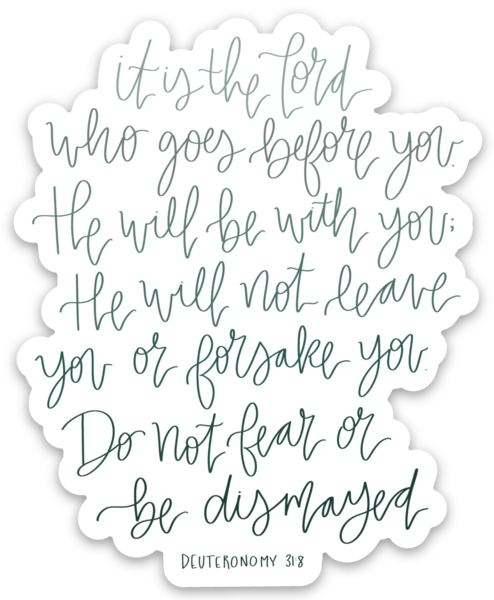 it is the Lord
who goes before you.
He will be with you;
He will not leave
you or forsake you.
Do not fear or
be dismayed
DEUTERONOMY 31:8